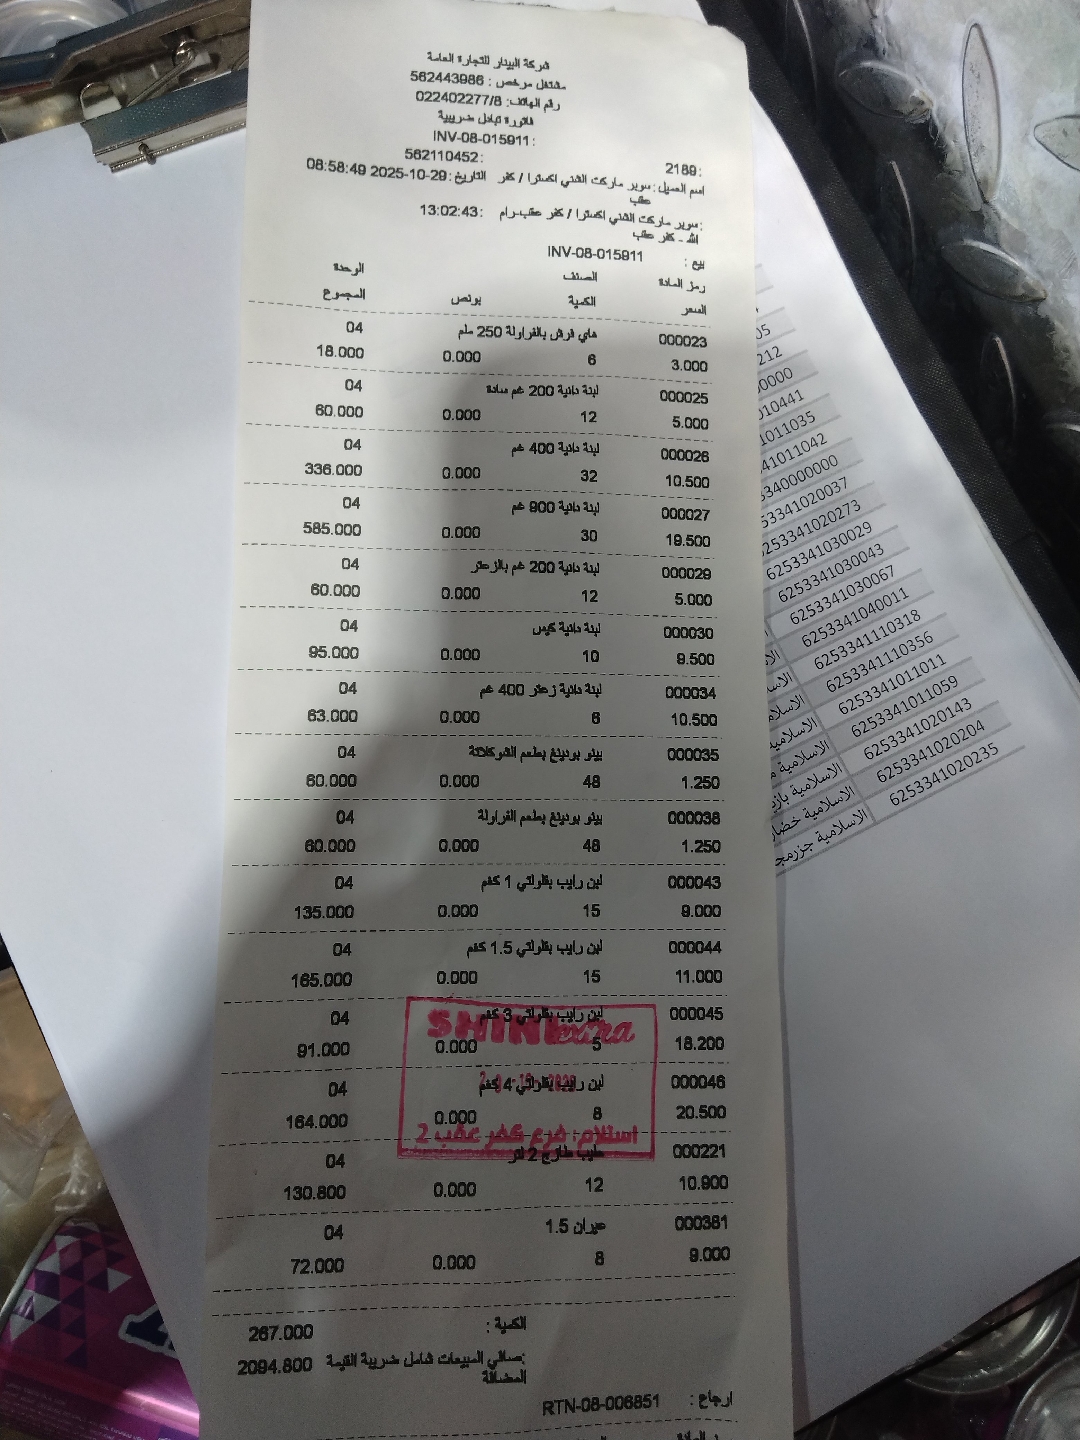 شركة البينار للتجارة العامة
مشتغل مرخص : 562443986
رقم الهاتف: 022402277/8
فاتورة تبادل ضريبية
INV-08-015911 :
562110452 :
2189 :
اسم العميل : سوبر ماركت الشني اكسترا / كفر عقب
التاريخ : 2025-10-29 08:58:49
: سوبر ماركت الشني اكسترا / كفر عقب-رام الله - كفر عقب
13:02:43 :
بيع : INV-08-015911
رمز المادة الصنف الوحدة
السعر الكمية بونص المجموع
000023 هاي فرش بالفراولة 250 ملم 04
3.000 6 0.000 18.000
000025 لبنة دانية 200 غم سادة 04
5.000 12 0.000 60.000
000026 لبنة دانية 400 غم 04
10.500 32 0.000 336.000
000027 لبنة دانية 900 غم 04
19.500 30 0.000 585.000
000029 لبنة دانية 200 غم بالزعتر 04
5.000 12 0.000 60.000
000030 لبنة دانية كيس 04
9.500 10 0.000 95.000
000034 لبنة دانية زعتر 400 غم 04
10.500 6 0.000 63.000
000035 بينو بودينغ بطعم الشوكلاتة 04
1.250 48 0.000 60.000
000036 بينو بودينغ بطعم الفراولة 04
1.250 48 0.000 60.000
000043 لبن رايب بقلولتي 1 كغم 04
9.000 15 0.000 135.000
000044 لبن رايب بقلولتي 1.5 كغم 04
11.000 15 0.000 165.000
000045 لبن رايب بقلولتي 3 كغم 04
18.200 5 0.000 91.000
000046 لبن رايب بقلولتي 4 كغم 04
20.500 8 0.000 164.000
000221 حليب طازج 2 لتر 04
10.900 12 0.000 130.800
000381 عيران 1.5 04
9.000 8 0.000 72.000
الكمية : 267.000
صافي المبيعات شامل ضريبة القيمة المضافة: 2094.800
ارجاع : RTN-08-006851
SHINI extra
استلام: فرع كفر عقب 2
05
212
0000
010441
1011035
41011042
5340000000
53341020037
253341020273
6253341030029
6253341030043
6253341030067
6253341040011
6253341110318
6253341110356
6253341011011
6253341011059
الاسلامية 6253341020143
الاسلامية خضار 6253341020204
الاسلامية 6253341020235